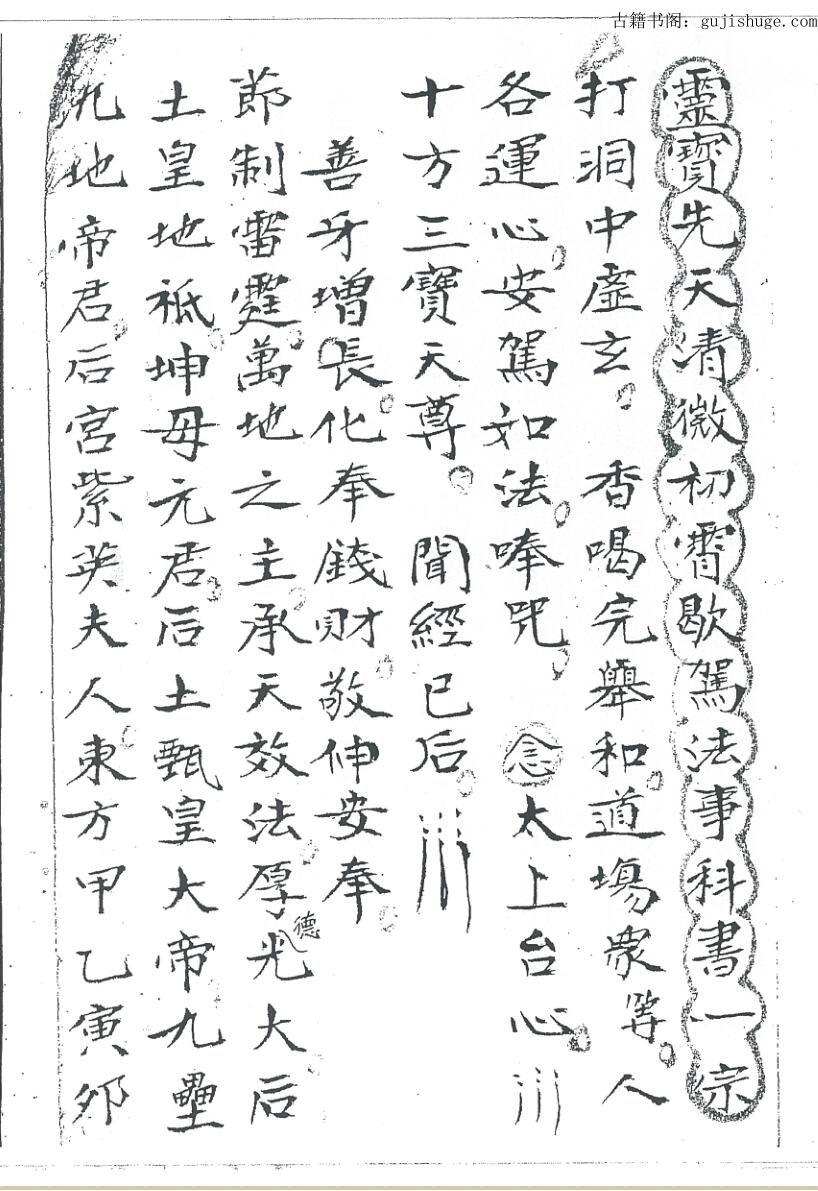 古籍书阁：gujishuge.com
靈寶先天清微初霄歇駕法事科書一宗
打洞中虛玄 香喝完舉和道場眾等人
各運心安駕如法唪咒 念太上台心
十方三寶天尊 聞經已后
善芽增長化奉錢財敬伸安奉
節制雷霆萬地之主承天效法厚德光大后
土皇地祗坤母元君后土甄皇大帝九壘
九地帝君后宮紫英夫人東方甲乙寅卯